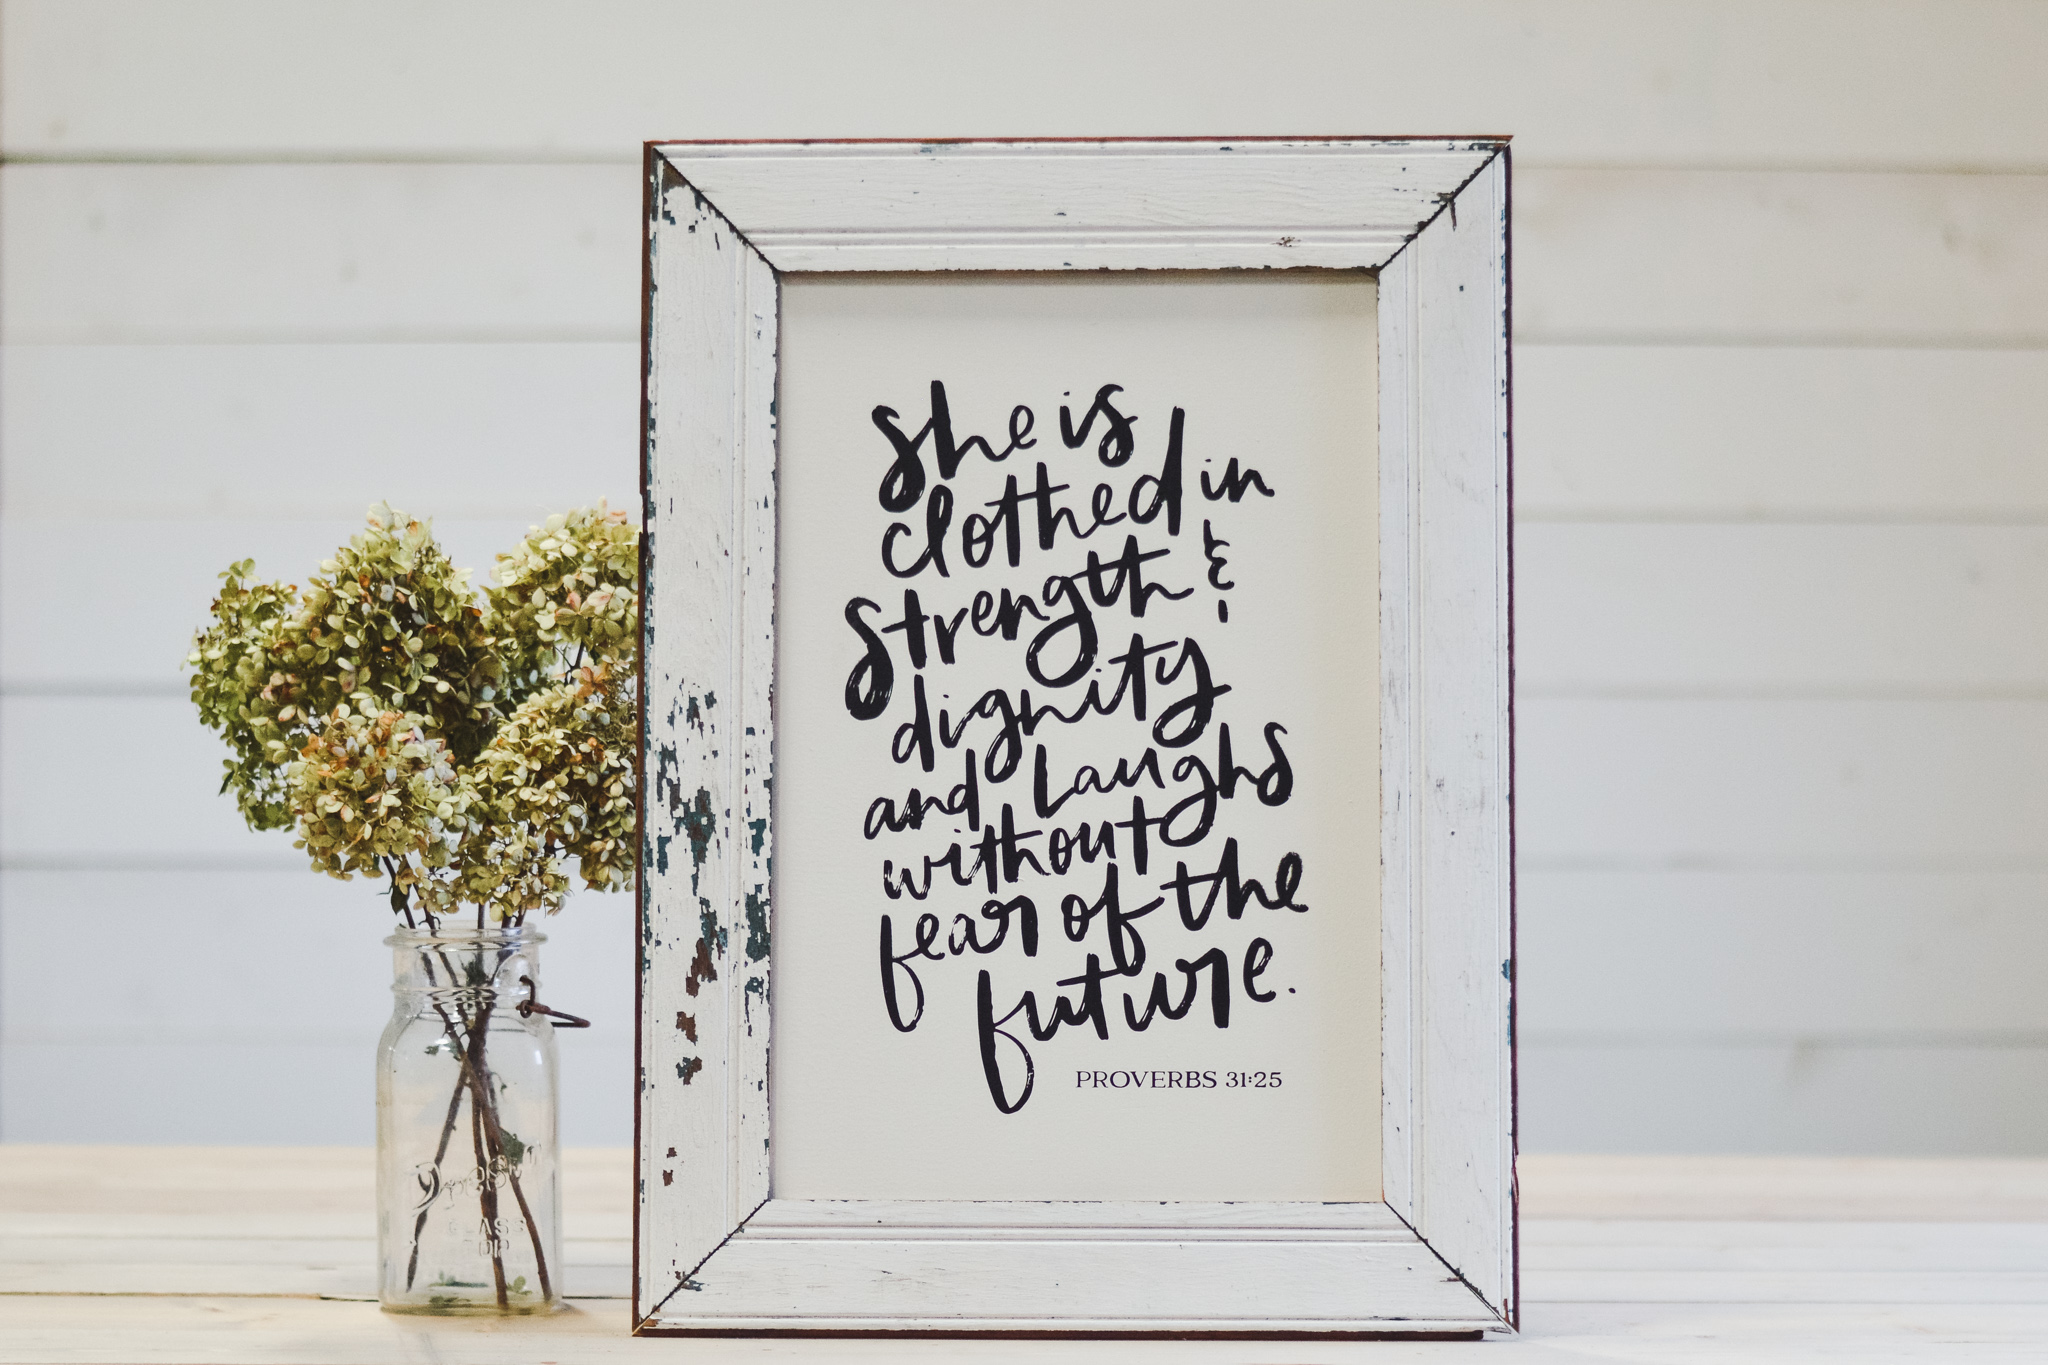 She is
clothed in
strength &
dignity
and laughs
without
fear of the
future.
PROVERBS 31:25
GLASS
TOP